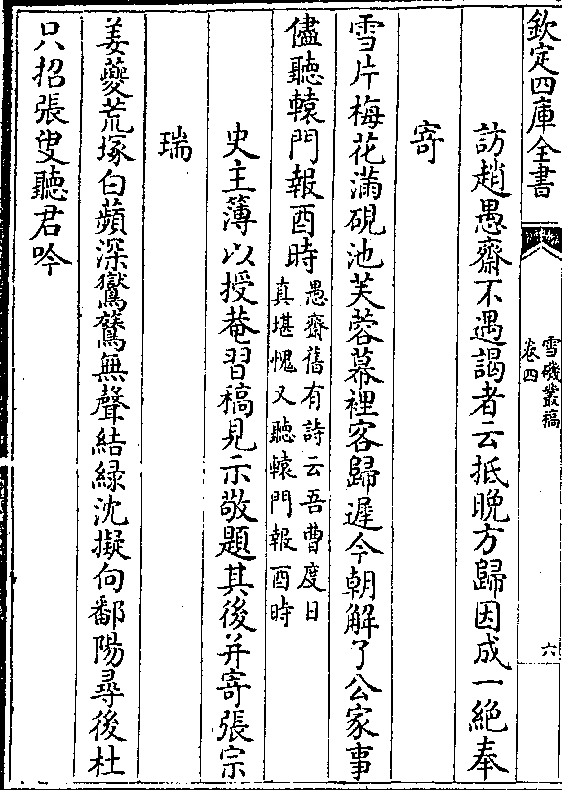 欽定四庫全書
雪磯叢稿
卷四
六
訪趙愚齋不遇謁者云抵晚方歸因成一絶奉
寄
雪片梅花滿硯池芙蓉幕裡客歸遲今朝解了公家事
儘聽轅門報酉時
愚齋舊有詩云吾曹度日
真堪愧又聽轅門報酉時
史主簿以授菴習稿見示敬題其後并寄張宗
瑞
姜夔荒塚白蘋深鸑鷟無聲結緑沈擬向鄱陽尋後杜
只招張叟聽君吟